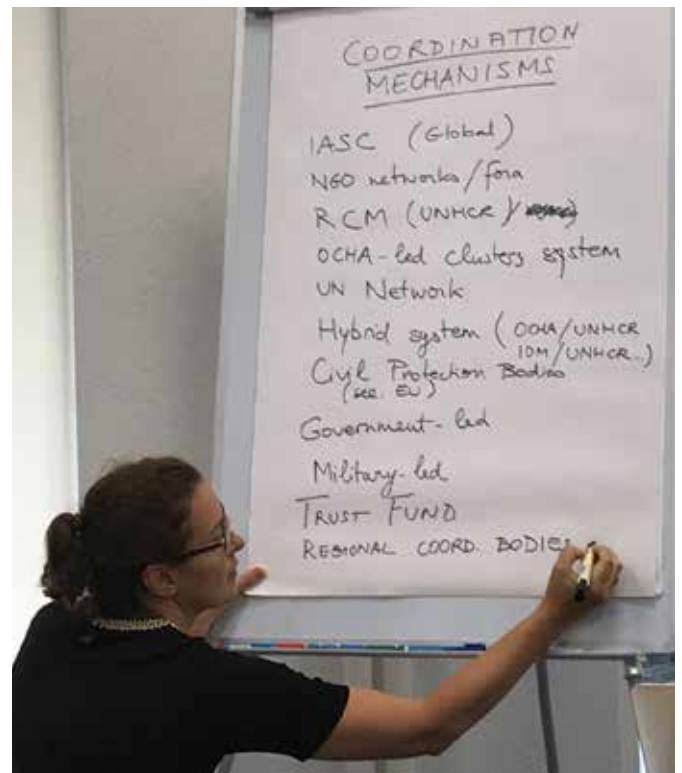 COORDINATION
MECHANISMS
IASC (Global)
NGO networks/fora
RCM (UNHCR)/
OCHA-led clusters system
UN Network
Hybrid system (OCHA/UNHCR
IOM/UNHCR...)
Civil Protection Bodies
(see EU)
Government-led
Military-led
TRUST FUND
REGIONAL COORD. BODIES